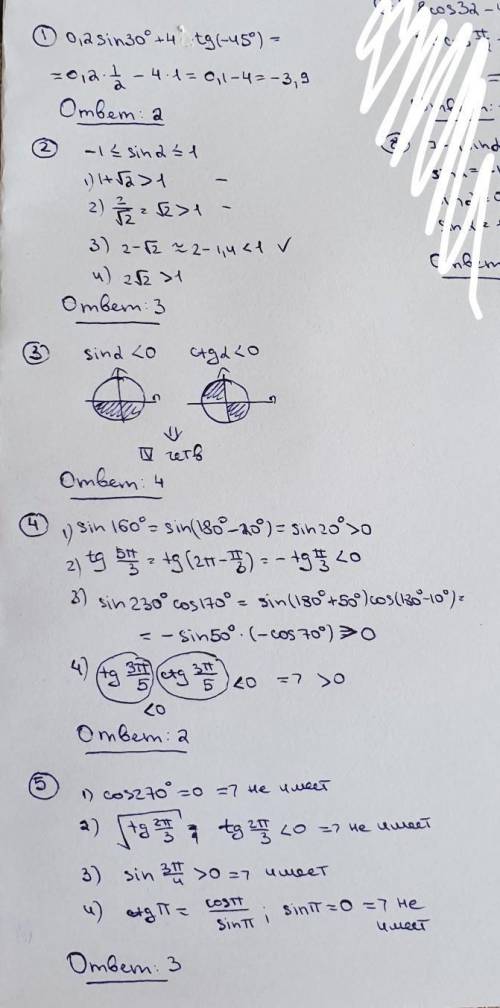 ① 0,2sin30° + 4 tg(-45°) =
= 0,2·1/2 - 4·1 = 0,1-4 = -3,9
Ответ: 2
② -1 ≤ sinα ≤ 1
1) 1+√2 > 1 -
2) 2/√2 = √2 > 1 -
3) 2-√2 ≈ 2-1,4 < 1 ✓
4) 2√2 > 1
Ответ: 3
③ sinα < 0 ctgα < 0
⇓
IV четв
Ответ: 4
④ 1) sin 160° = sin(180°-20°) = sin20° > 0
2) tg 5π/3 = tg(2π - π/3) = -tg π/3 < 0
3) sin 230° cos170° = sin(180°+50°)cos(180°-10°) =
= -sin50°·(-cos70°) > 0
4) tg 3π/5 ctg 3π/5 < 0 => > 0
< 0
Ответ: 2
⑤ 1) cos270° = 0 => не имеет
2) √tg 2π/3 ; tg 2π/3 < 0 => не имеет
3) sin 3π/4 > 0 => имеет
4) ctg π = cosπ/sinπ ; sinπ = 0 => не
имеет
Ответ: 3